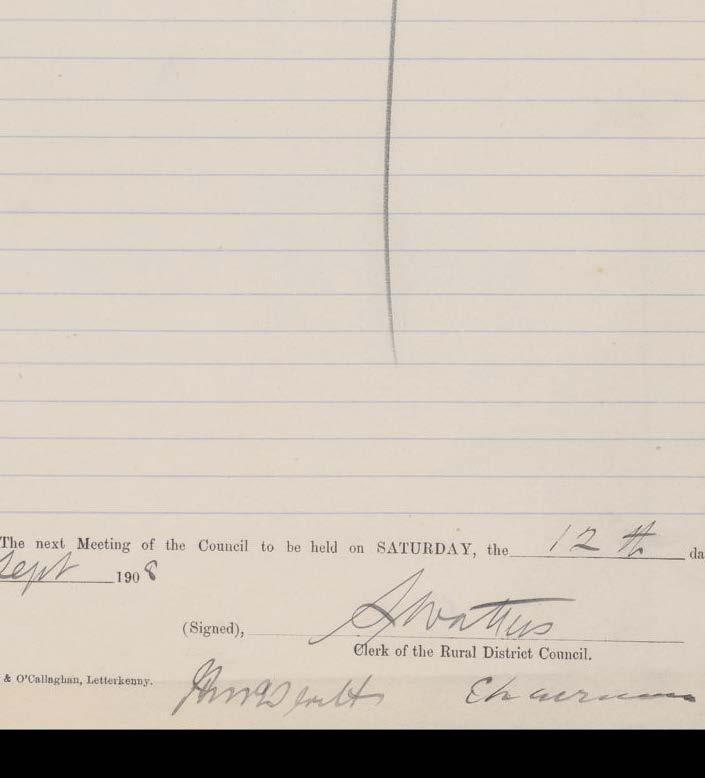 The next Meeting of the Council to be held on SATURDAY, the 12th da
Sept 1908
(Signed),
Clerk of the Rural District Council.
& O'Callaghan, Letterkenny.
Chairman